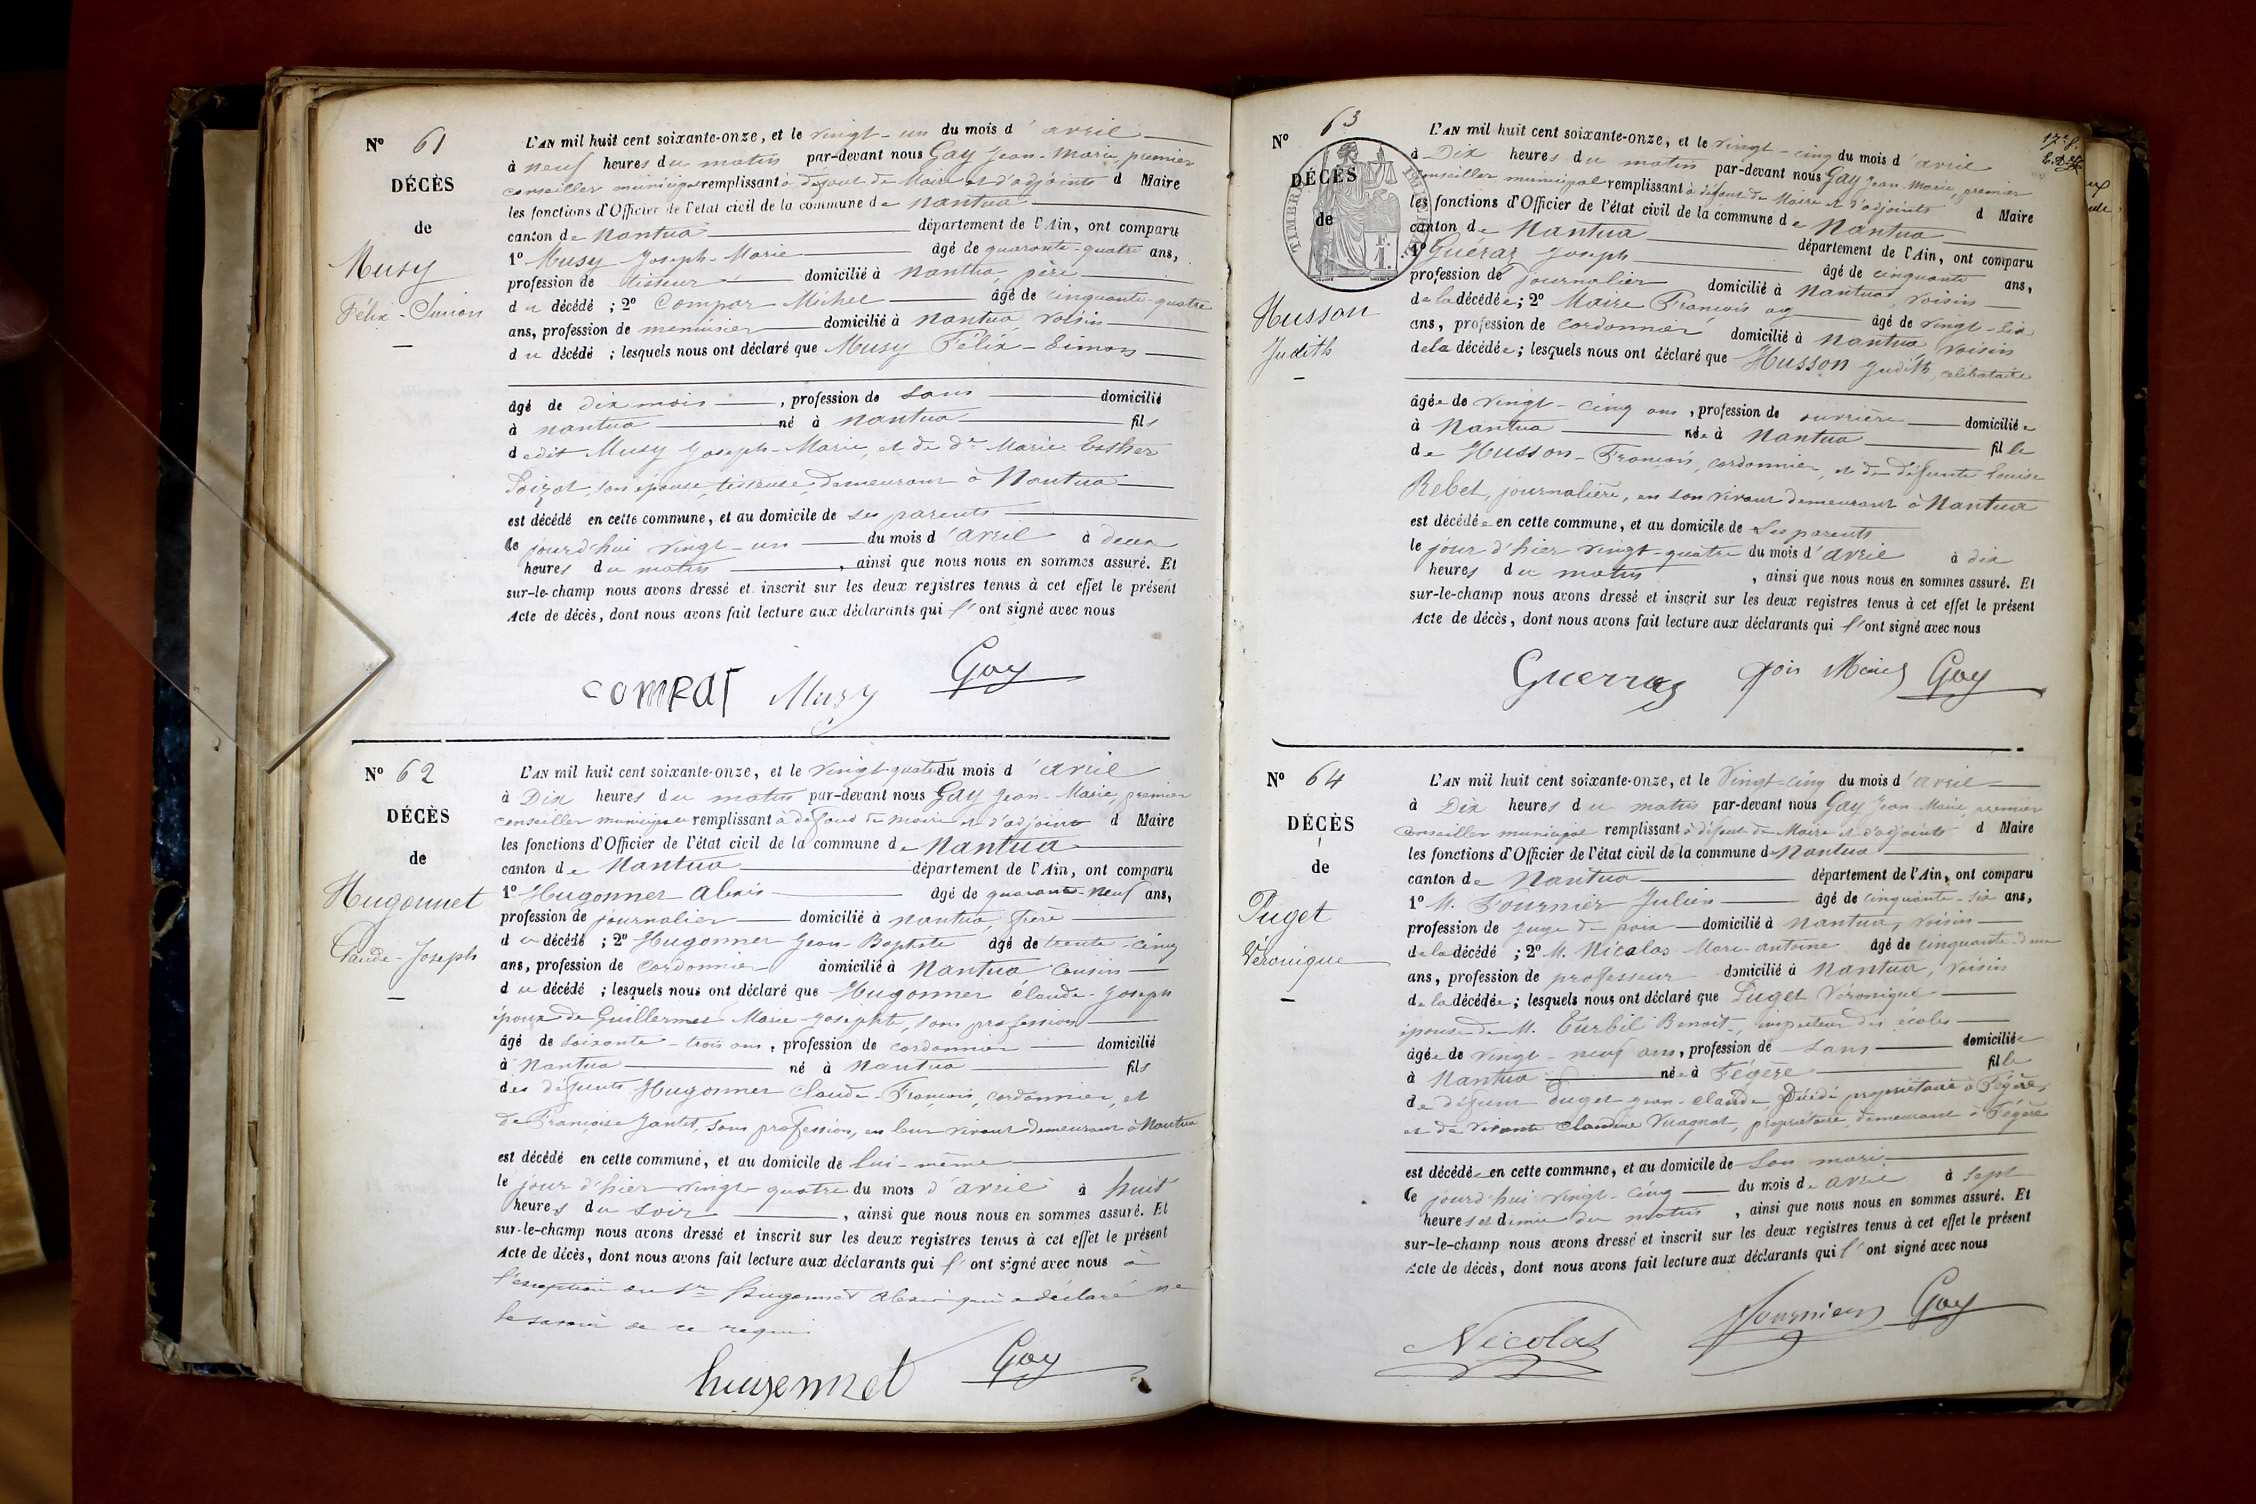 N° 61
DÉCÈS
de
Musy
Félix-Simon
L'AN mil huit cent soixante-onze, et le vingt-un du mois d'avril
à neuf heures du matin par-devant nous Gay Jean-Marie, premier
conseiller municipal remplissant à défaut de Maire et d'adjoints d Maire
les fonctions d'Officier de l'état civil de la commune de Nantua
canton de Nantua département de l'Ain, ont comparu
1° Musy Joseph-Marie âgé de quarante-quatre ans,
profession de tisseur domicilié à Nantua, père
du décédé ; 2° Compar Michel âgé de cinquante-quatre
ans, profession de menuisier domicilié à Nantua voisin
du décédé ; lesquels nous ont déclaré que Musy Félix-Simon
âgé de dix mois, profession de sans domicilié
à Nantua né à Nantua fils
dedit Musy Joseph-Marie, et de de Marie Esther
son épouse, tisseuse, demeurant à Nantua
est décédé en cette commune, et au domicile de ses parents
le jourd'hui vingt-un du mois d'avril à deux
heures du matin, ainsi que nous nous en sommes assuré. Et
sur-le-champ nous avons dressé et inscrit sur les deux registres tenus à cet effet le présent
Acte de décès, dont nous avons fait lecture aux déclarants qui l'ont signé avec nous
compar Musy Gay
N° 62
DÉCÈS
de
Hugonnet
Claude-Joseph
L'AN mil huit cent soixante-onze, et le vingt-quatre du mois d'avril
à Dix heures du matin par-devant nous Gay Jean-Marie, premier
conseiller municipal remplissant à défaut de maire et d'adjoints d Maire
les fonctions d'Officier de l'état civil de la commune de Nantua
canton de Nantua département de l'Ain, ont comparu
1° Hugonnet Alexis âgé de quarante-neuf ans,
profession de journalier domicilié à Nantua, frère
du décédé ; 2° Hugonnet Jean-Baptiste âgé de trente-cinq
ans, profession de cordonnier domicilié à Nantua cousin
du décédé ; lesquels nous ont déclaré que Hugonnet Claude-Joseph
époux de Guillermet Marie-Josephte, sans profession
âgé de soixante-trois ans, profession de cordonnier domicilié
à Nantua né à Nantua fils
des défunts Hugonnet Claude-François, cordonnier, et
de Françoise Jantet, sans profession, en leur vivant demeurant à Nantua
est décédé en cette commune, et au domicile de lui-même
le jour d'hier vingt quatre du mois d'avril à huit
heures du soir, ainsi que nous nous en sommes assuré. Et
sur-le-champ nous avons dressé et inscrit sur les deux registres tenus à cet effet le présent
Acte de décès, dont nous avons fait lecture aux déclarants qui l'ont signé avec nous à
l'exception du Sr Hugonnet Alexis qui a déclaré ne
le savoir de ce requis
hugonnet Gay
N° 63
DÉCÈS
de
Husson
Judith
L'AN mil huit cent soixante-onze, et le vingt-cinq du mois d'avril
à Dix heures du matin par-devant nous Gay Jean-Marie, premier
conseiller municipal remplissant à défaut de Maire et d'adjoints d Maire
les fonctions d'Officier de l'état civil de la commune de Nantua
canton de Nantua département de l'Ain, ont comparu
1° Guéraz Joseph âgé de cinquante ans,
profession de journalier domicilié à Nantua, voisin
de la décédée ; 2° Maire François âgé de vingt-six
ans, profession de cordonnier domicilié à Nantua, voisin
de la décédée ; lesquels nous ont déclaré que Husson Judith, célibataire
âgée de vingt-cinq ans, profession de ouvrière domiciliée
à Nantua née à Nantua fille
de Husson-François, cordonnier, et de défunte Louise
Rebet, journalière, en son vivant demeurant à Nantua
est décédée en cette commune, et au domicile de ses parents
le jour d'hier vingt-quatre du mois d'avril à dix
heures du matin, ainsi que nous nous en sommes assuré. Et
sur-le-champ nous avons dressé et inscrit sur les deux registres tenus à cet effet le présent
Acte de décès, dont nous avons fait lecture aux déclarants qui l'ont signé avec nous
Guerraz Gay
N° 64
DÉCÈS
de
Puget
Véronique
L'AN mil huit cent soixante-onze, et le vingt-cinq du mois d'avril
à Dix heures du matin par-devant nous Gay Jean-Marie, premier
conseiller municipal remplissant à défaut de Maire et d'adjoints d Maire
les fonctions d'Officier de l'état civil de la commune de Nantua
canton de Nantua département de l'Ain, ont comparu
1° M. Fournier Julien âgé de cinquante-six ans,
profession de juge de paix domicilié à Nantua, voisin
de la décédé ; 2° M. Nicolas Marc-Antoine âgé de cinquante-deux
ans, profession de professeur domicilié à Nantua, voisin
de la décédée ; lesquels nous ont déclaré que Puget Véronique
épouse de M. Turbil Benoit, inspecteur des écoles
âgée de vingt-neuf ans, profession de sans domiciliée
à Nantua née à Fégère fille
de défunt Puget Jean-Claude Décédé propriétaire à Fégère,
et de vivante Claudine Vuagnat, propriétaire demeurant à Fégère
est décédée en cette commune, et au domicile de son mari
le jourd'hui vingt-cinq du mois de avril à sept
heures et demie du matin, ainsi que nous nous en sommes assuré. Et
sur-le-champ nous avons dressé et inscrit sur les deux registres tenus à cet effet le présent
Acte de décès, dont nous avons fait lecture aux déclarants qui l'ont signé avec nous
Nicolas Fournier Gay